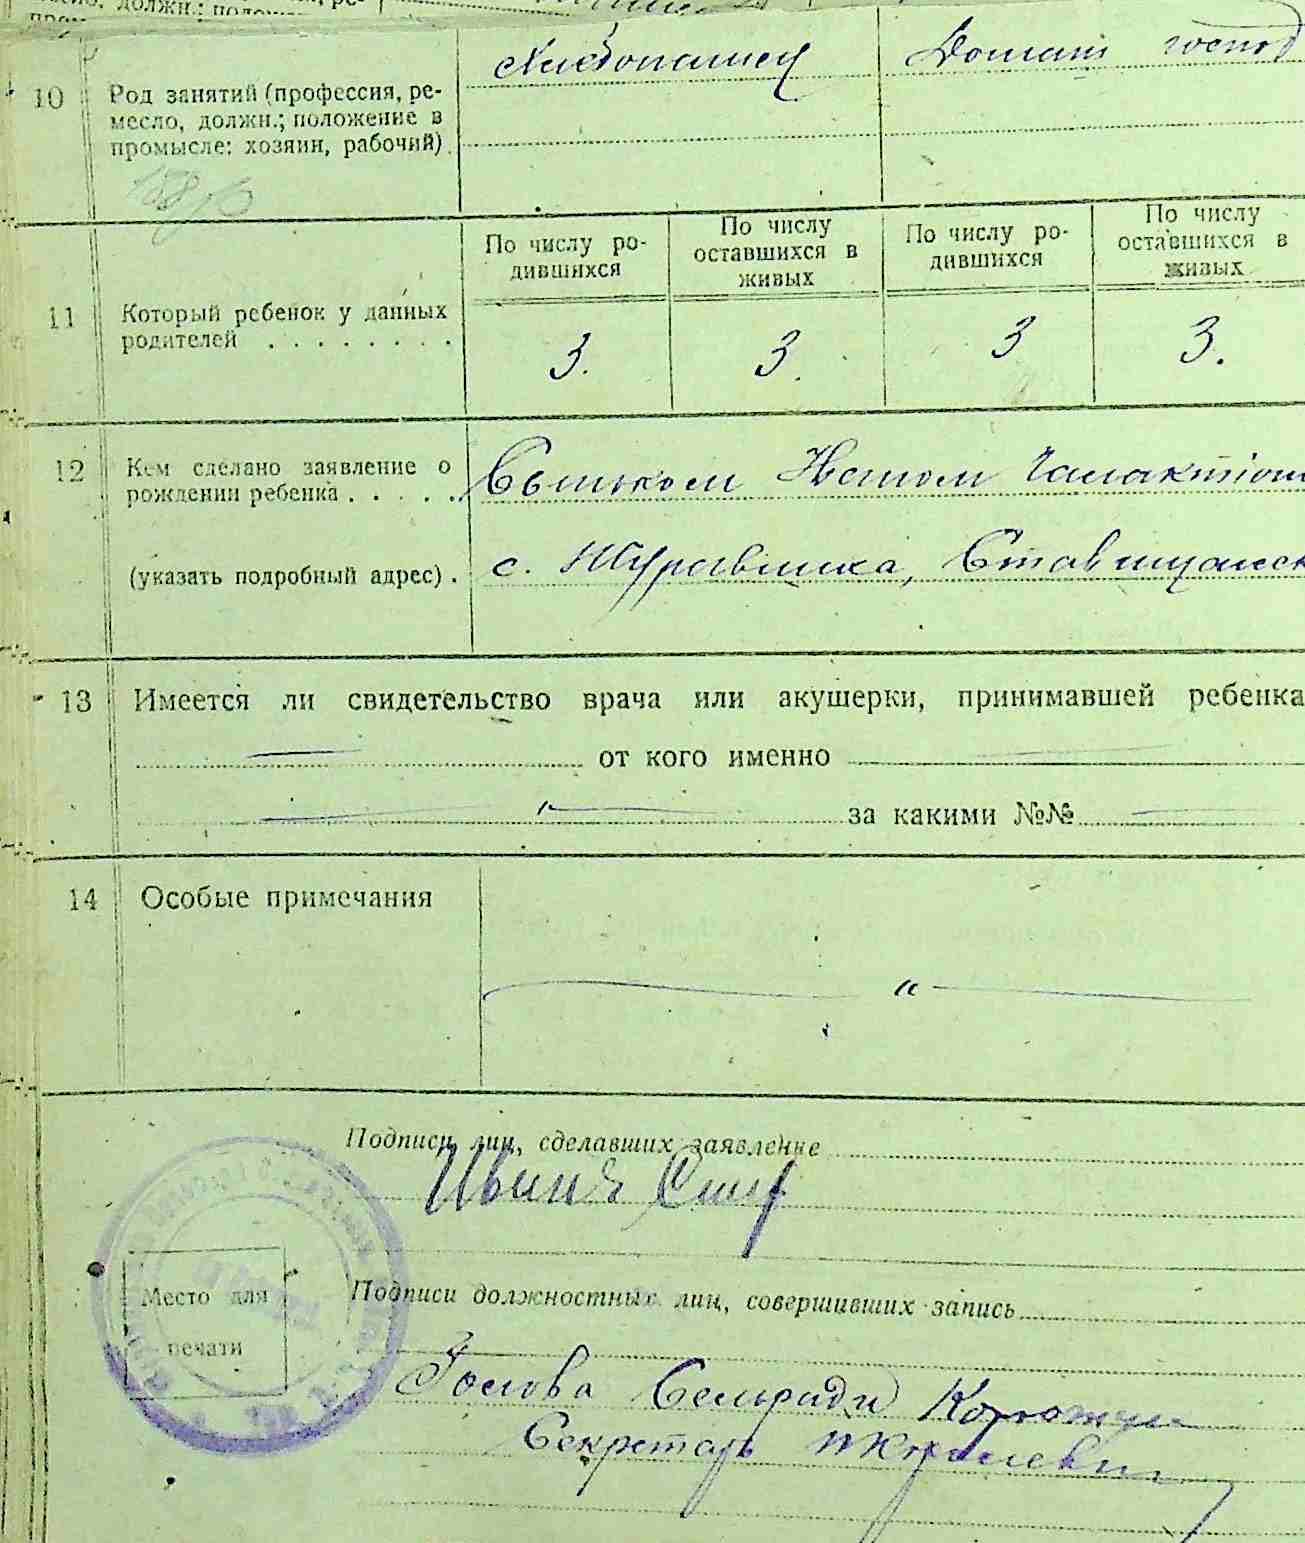 10
Род занятий (профессия, ре-
месло, должн.; положение в
промысле: хозяин, рабочий).
Хлебопашец
Домаш госпód
11
Который ребенок у данных
родителей . . . . . . . .
По числу ро-
дившихся
По числу
оставшихся в
живых
По числу ро-
дившихся
По числу
оставшихся в
живых
3. 3. 3 3.
12
Кем сделано заявление о
рождении ребенка . . . . .
(указать подробный адрес) .
с. Журавлиха, Ставищанск
13 Имеется ли свидетельство врача или акушерки, принимавшей ребенка
от кого именно
за какими №№
14 Особые примечания
Подписи лиц, сделавших заявление
Место для
печати
Подписи должностных лиц, совершивших запись
Голова Сельради
Секретарь